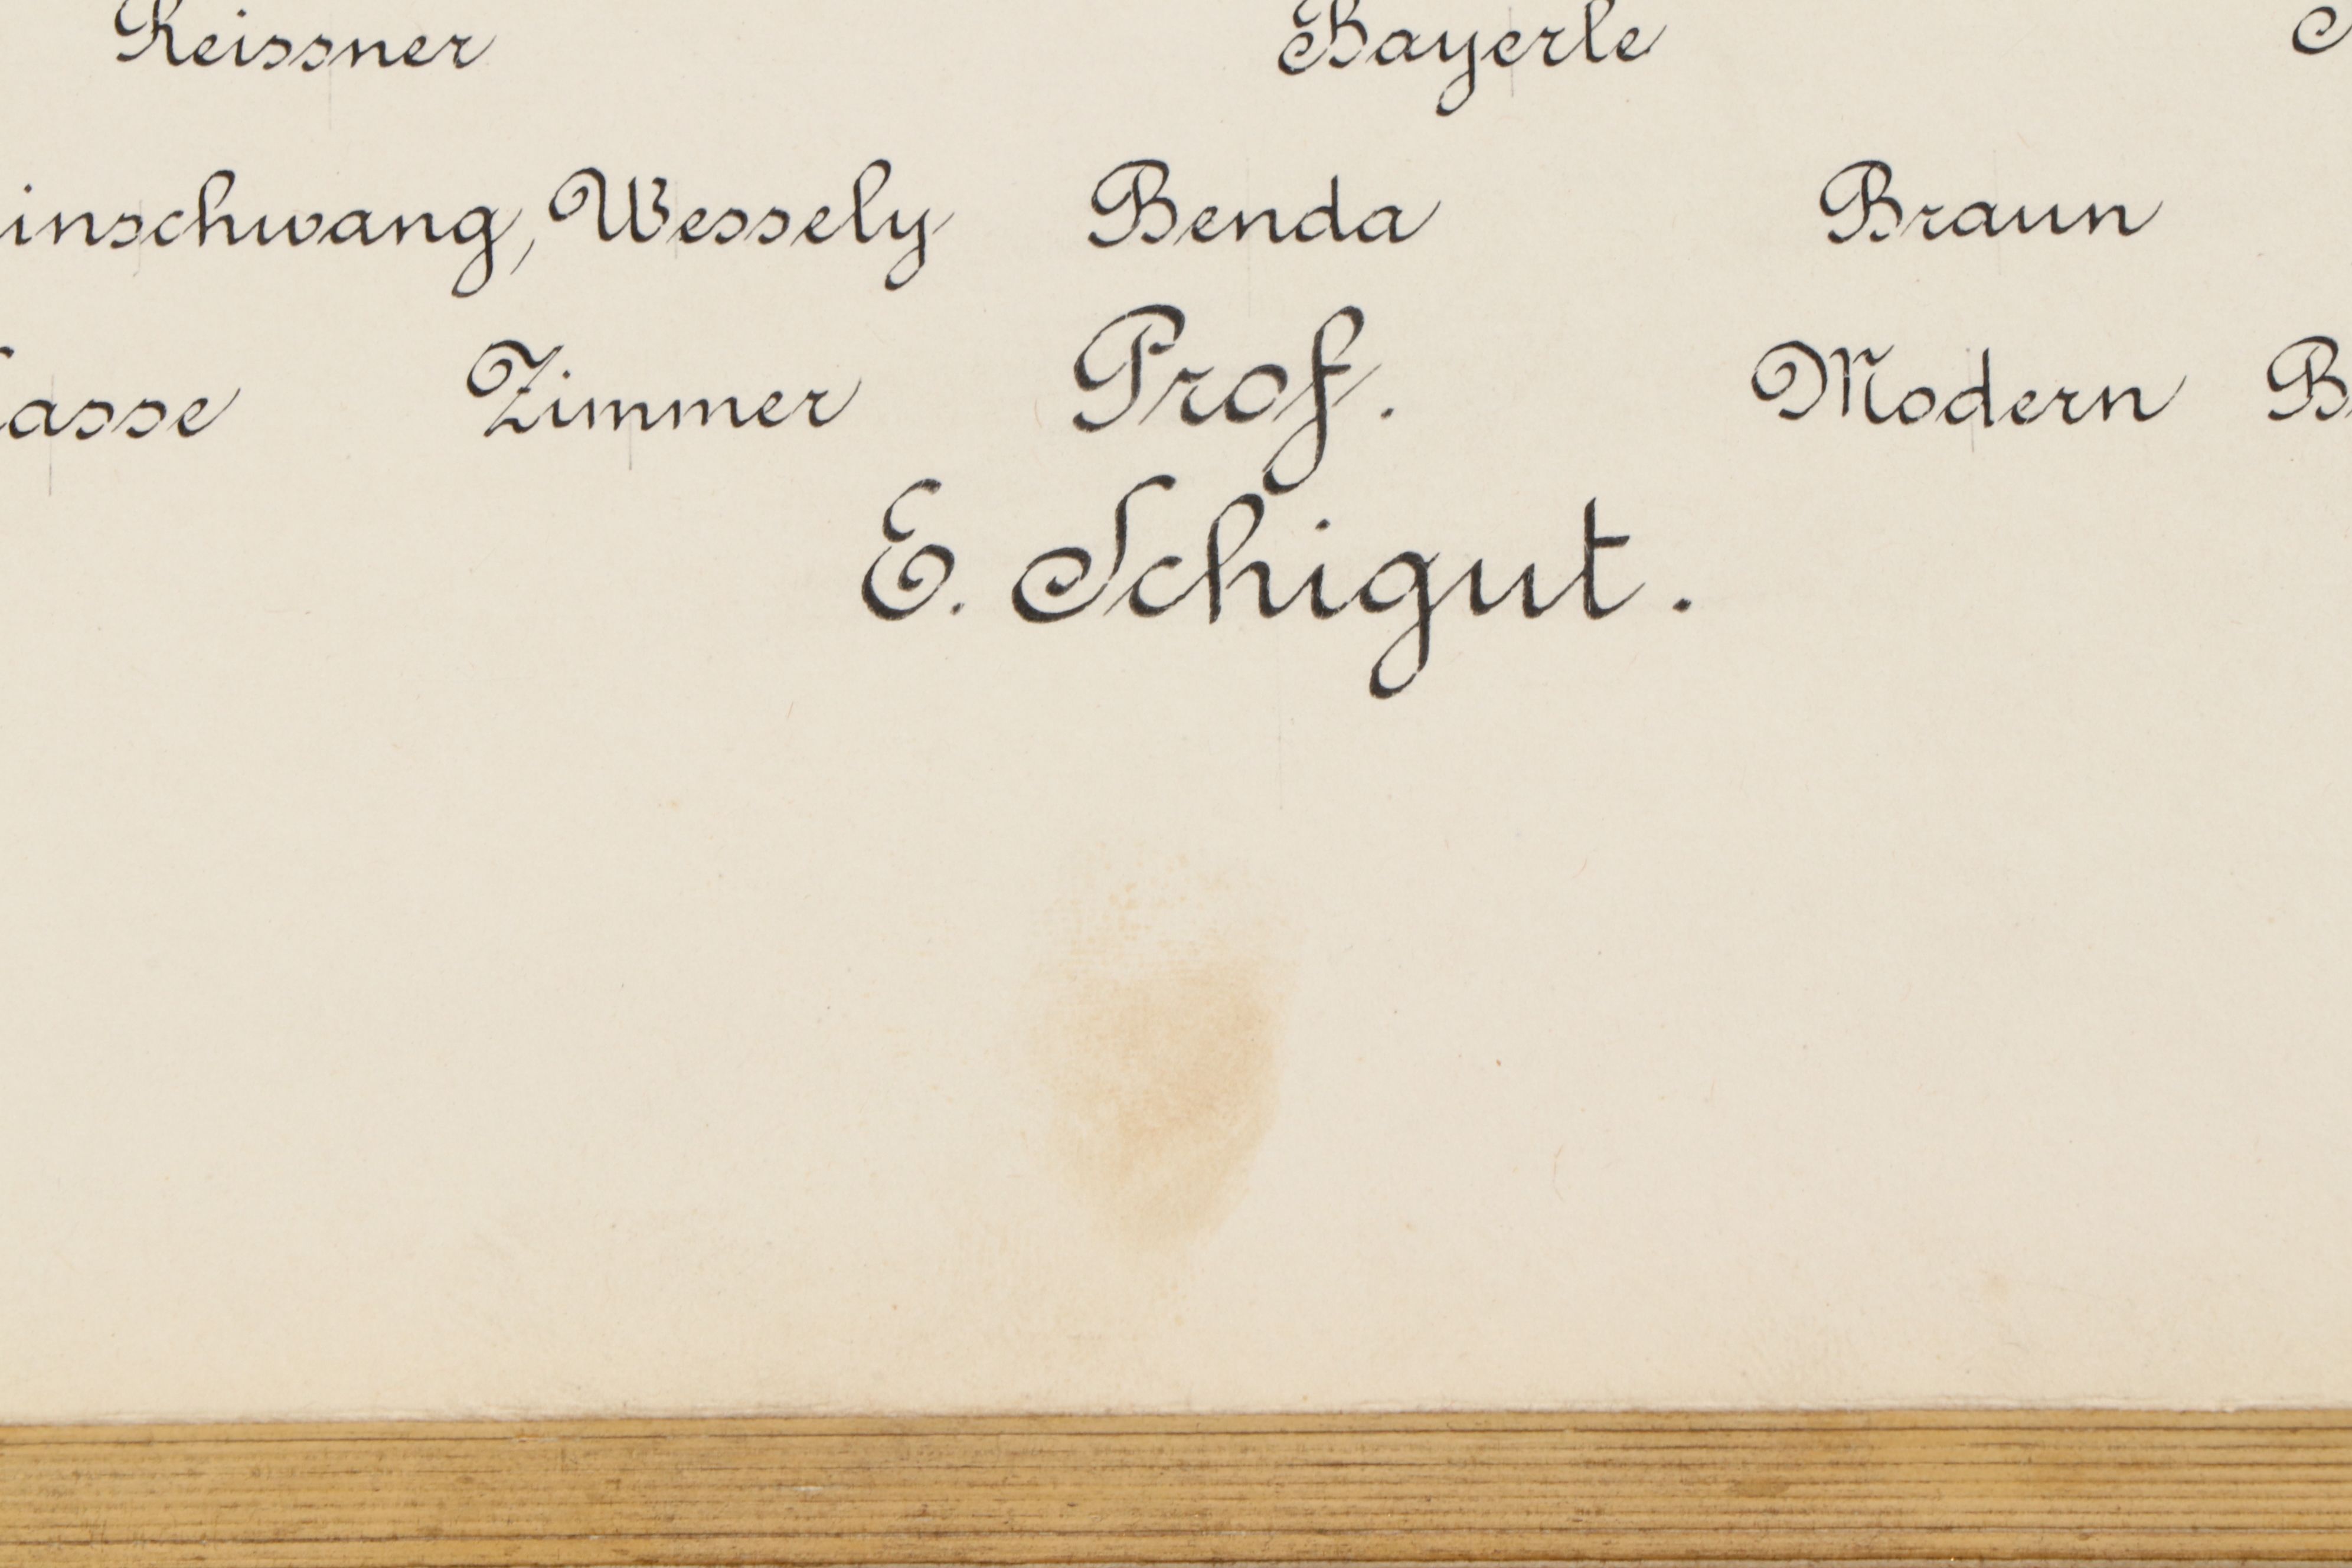 Reissner Bayerle
inschwang, Wessely Benda Braun
asse Zimmer Prof. Modern B
E. Schigut.